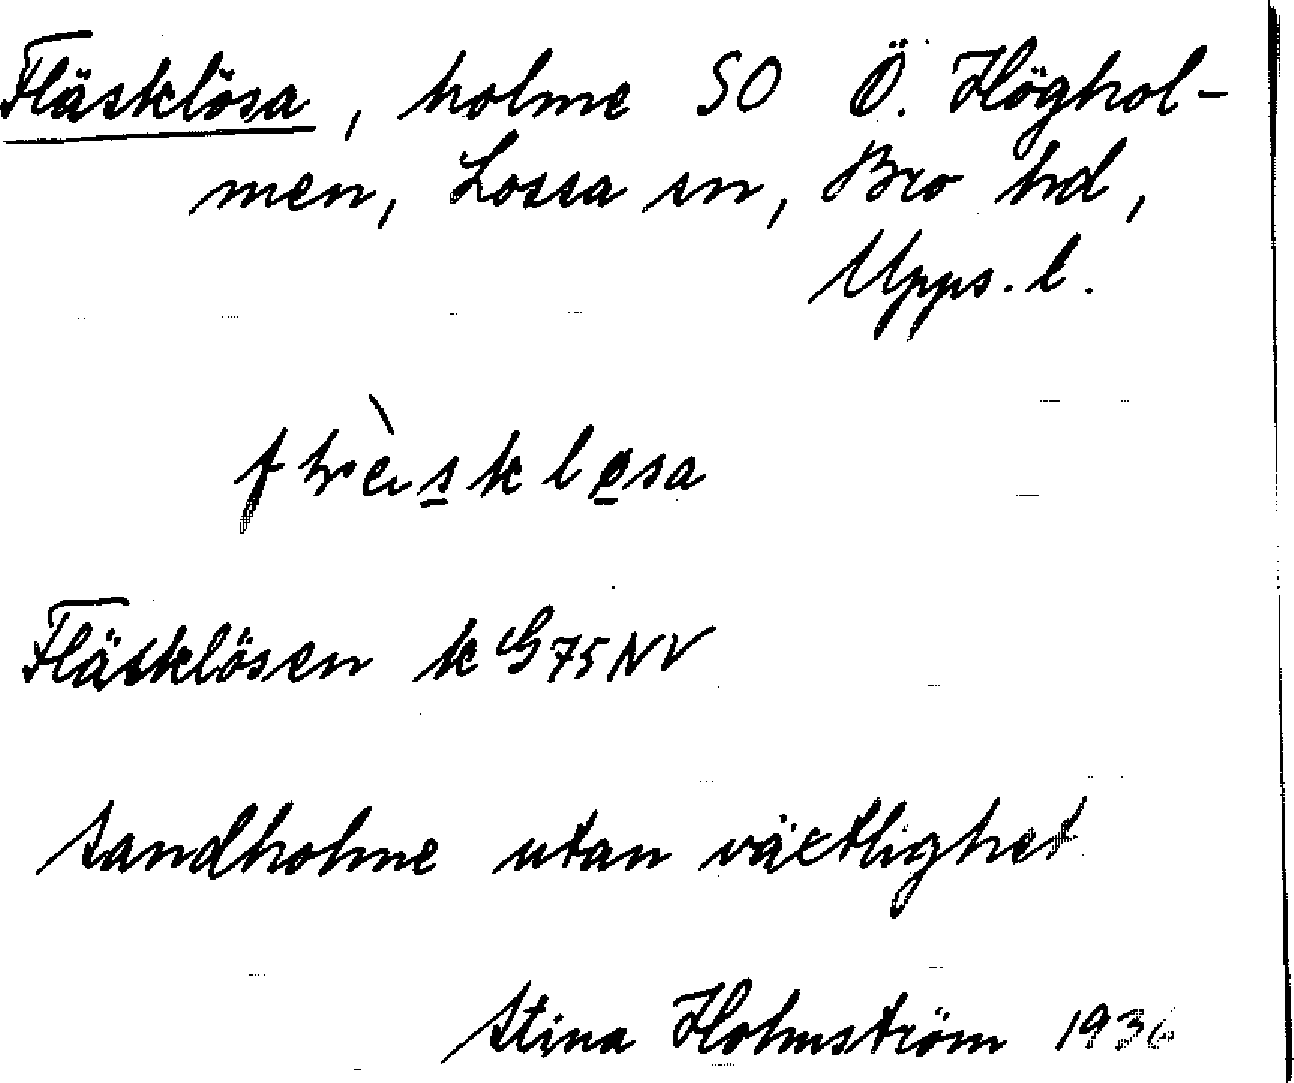 Fläsklösa, holme SO Ö. Höghol-
men, Lossa sn, Bro hd,
Upps. l.
Fläsklösen k G 75 NV
Sandholme utan växtlighet
Stina Holmström 1936